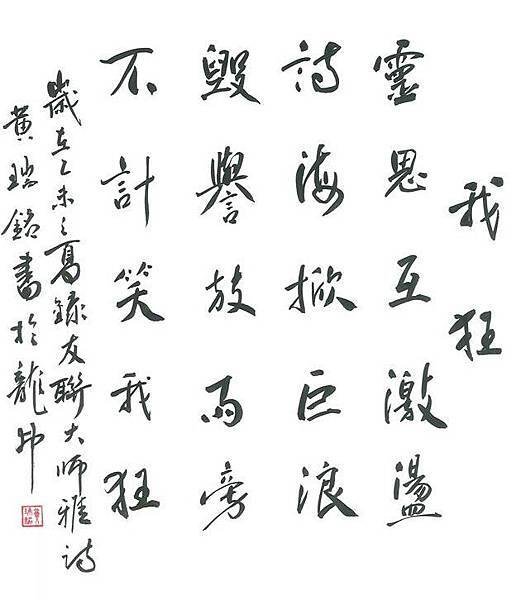 我狂
靈思互激盪
詩海掀巨浪
毀譽放両旁
不計笑我狂
歲在乙未之夏錄友聯大師雅詩
黃瑞銘書於龍井